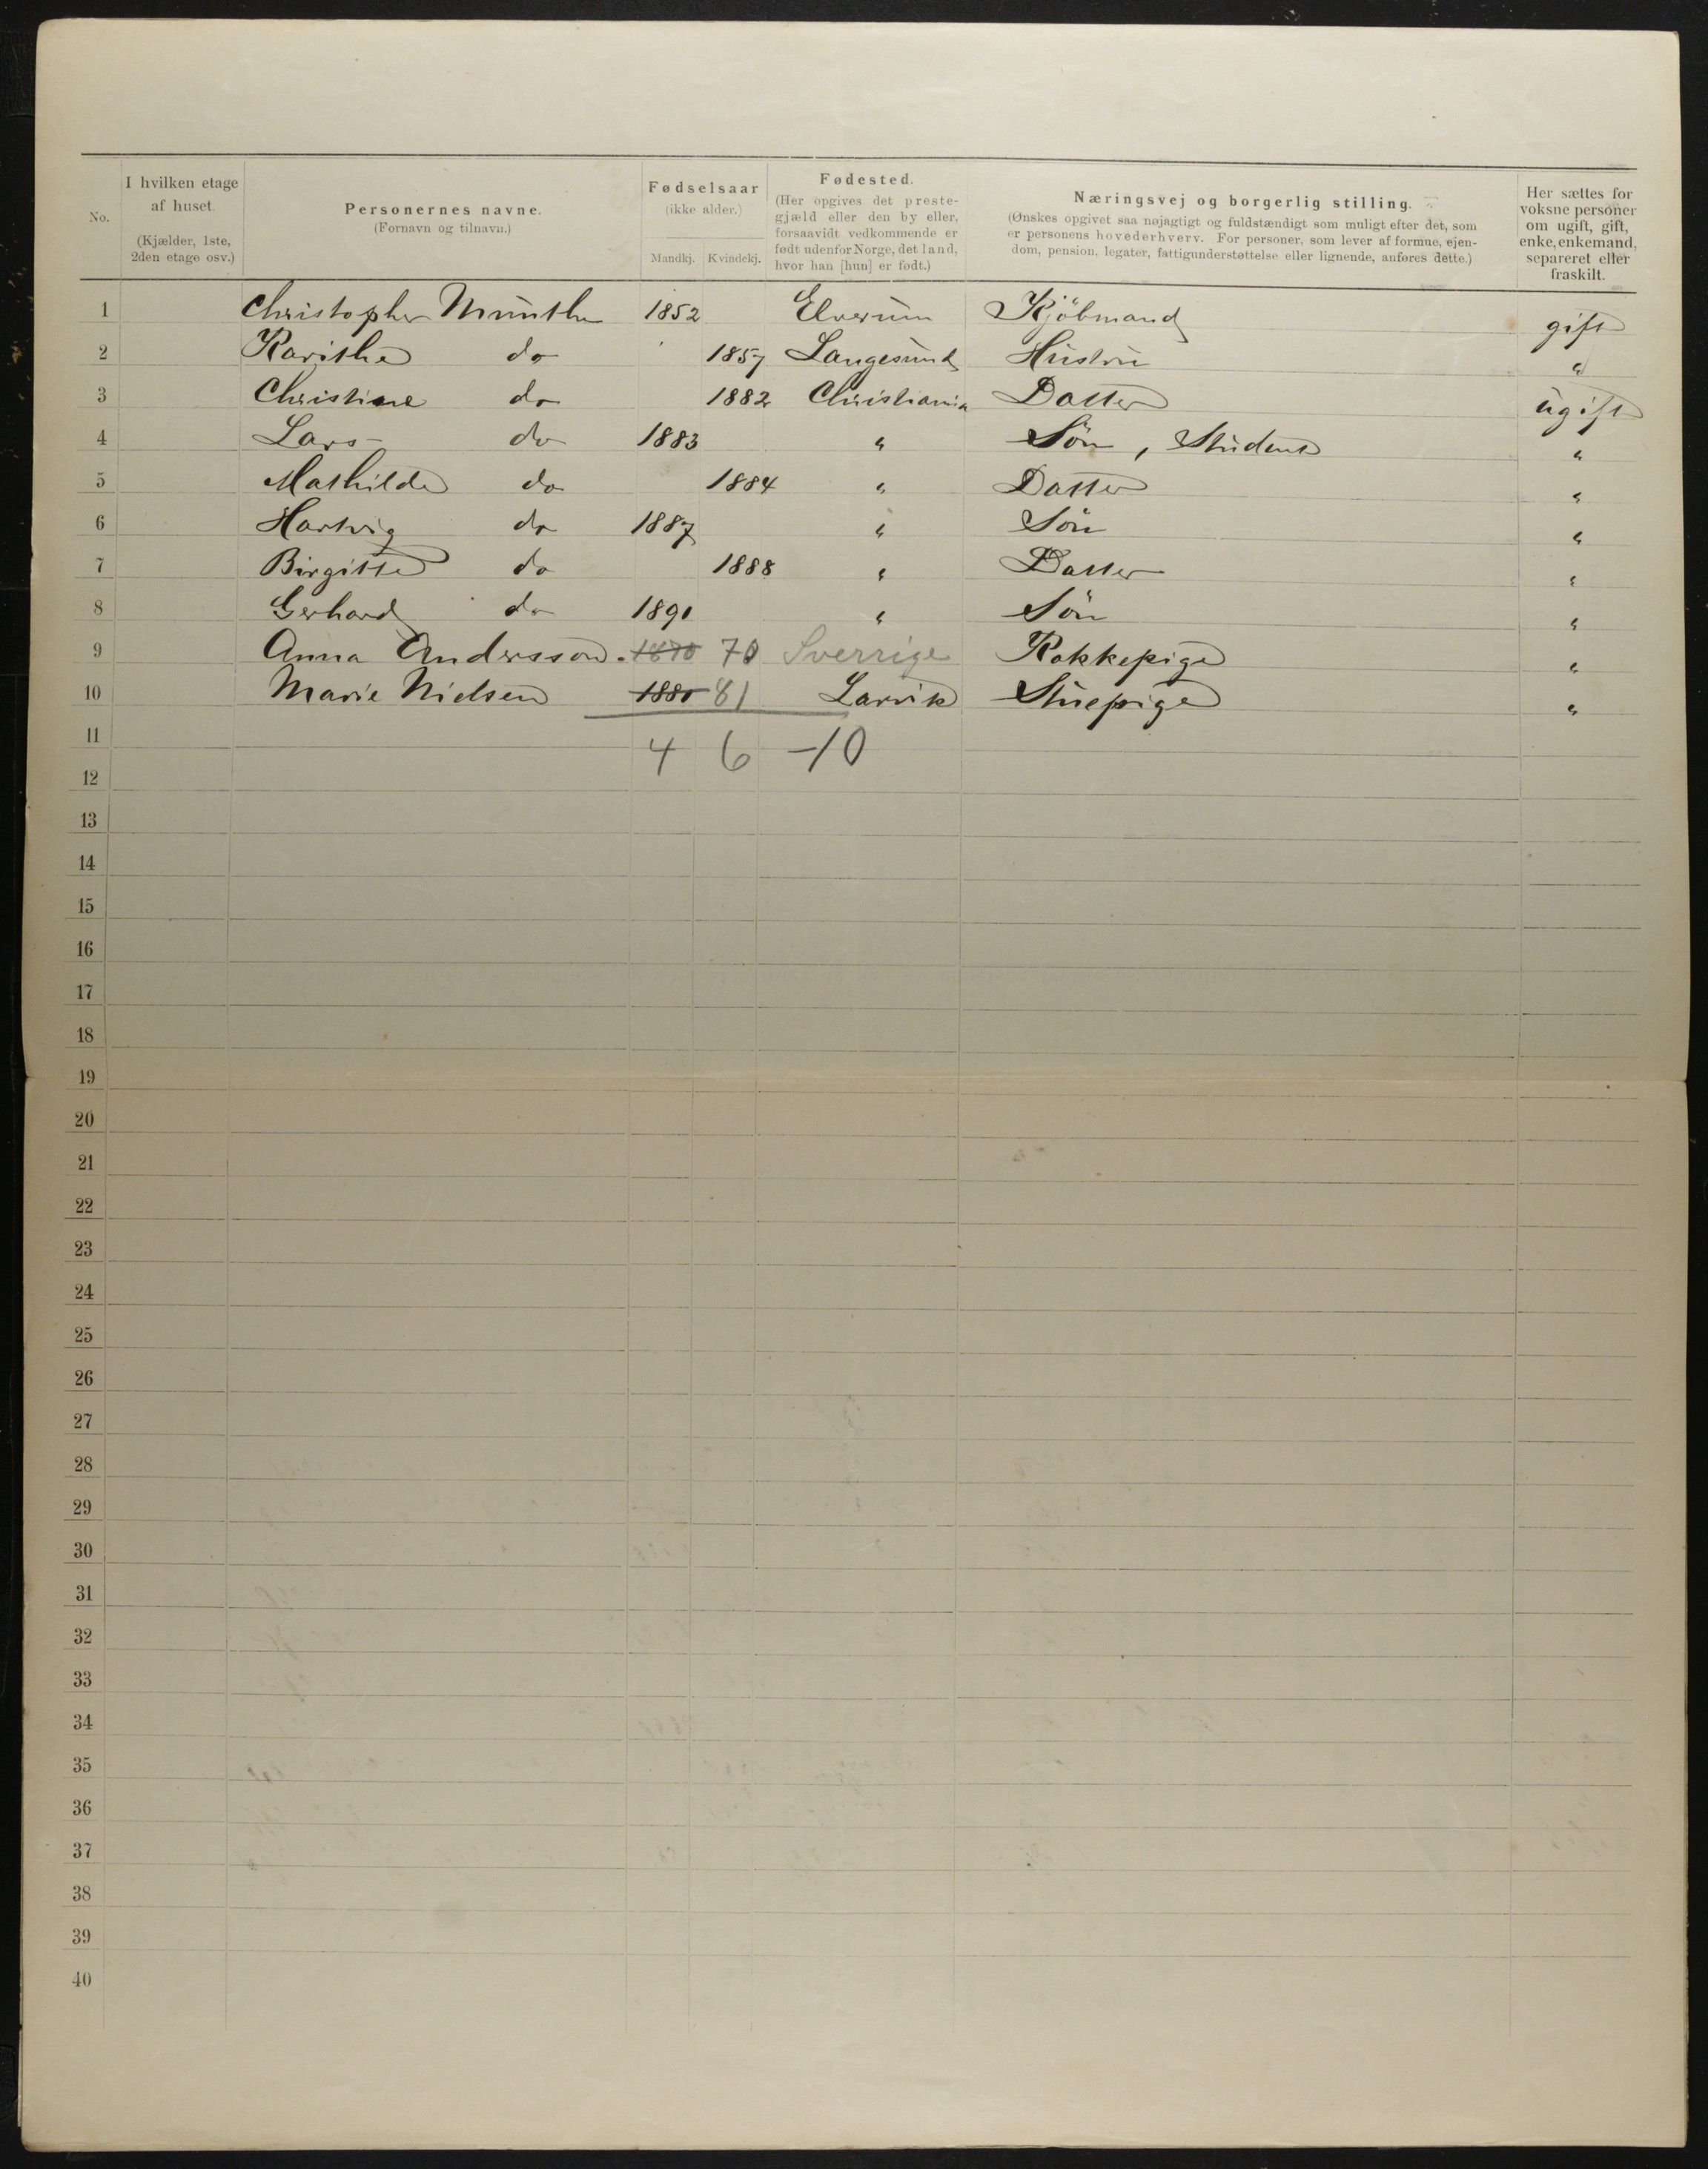 No.
I hvilken etage af huset.
(Kjælder, 1ste, 2den etage osv.)
Personernes navne.
(Fornavn og tilnavn.)
Fødselsaar
(ikke alder.)
Mandkj. Kvindekj.
Fødested.
(Her opgives det preste-
gjæld eller den by eller,
forsaavidt vedkommende er
født udenfor Norge, det land,
hvor han [hun] er født.)
Næringsvej og borgerlig stilling.
(Ønskes opgivet saa nøjagtigt og fuldstændigt som muligt efter det, som
er personens hovederhverv. For personer, som lever af formue, ejen-
dom, pension, legater, fattigunderstøttelse eller lignende, anføres dette.)
Her sættes for
voksne personer
om ugift, gift,
enke, enkemand,
separeret eller
fraskilt.
1 Christopher Munthe 1852 Elverum Kjöbmand gift
2 Karithe do 1857 Langesund Hustru "
3 Christine do 1882 Christiania Datter ugift
4 Lars do 1883 " Sön, Student "
5 Mathilde do 1884 " Datter "
6 Hartvig do 1887 " Sön "
7 Birgitte do 1888 " Datter "
8 Gerhard do 1890 " Sön "
9 Anna Andersson 1870 70 Sverrige Kokkepige "
10 Marie Nielsen 1880 81 Larvik Stuepige "
11 4 6 -10
12
13
14
15
16
17
18
19
20
21
22
23
24
25
26
27
28
29
30
31
32
33
34
35
36
37
38
39
40